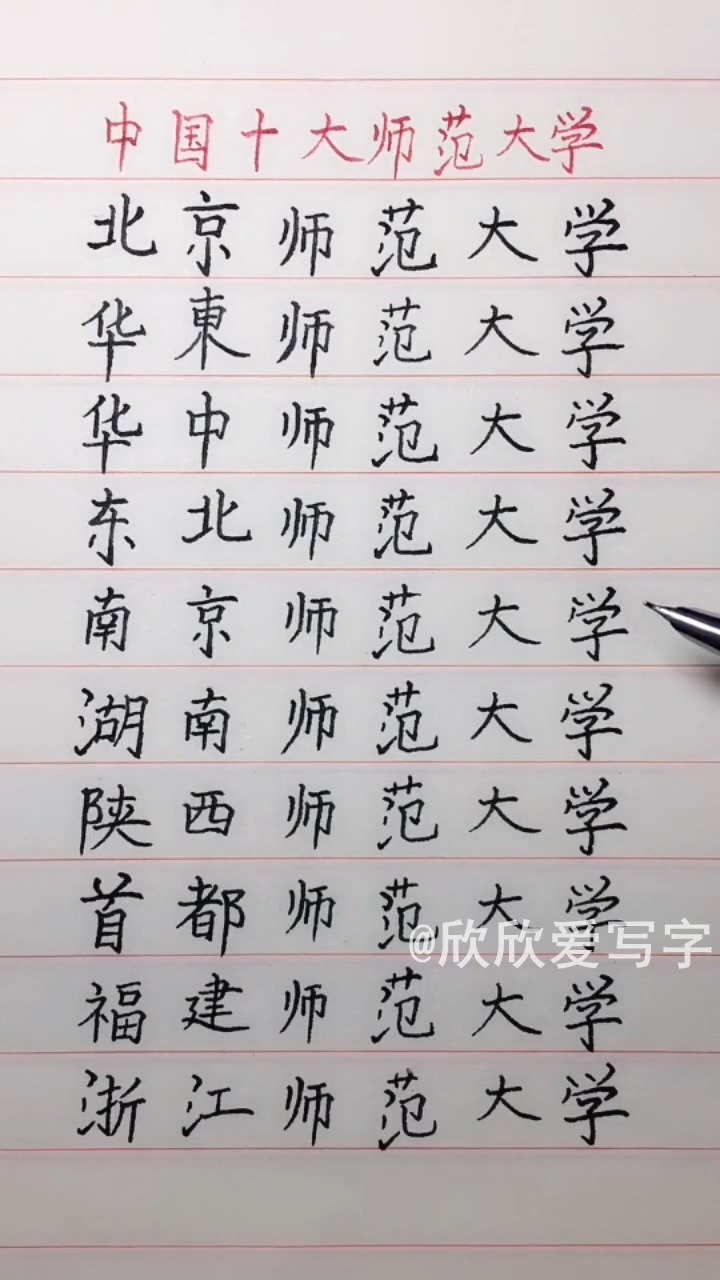 中国十大师范大学
北京师范大学
华東师范大学
华中师范大学
东北师范大学
南京师范大学
湖南师范大学
陕西师范大学
首都师范大学
@欣欣爱写字
福建师范大学
浙江师范大学